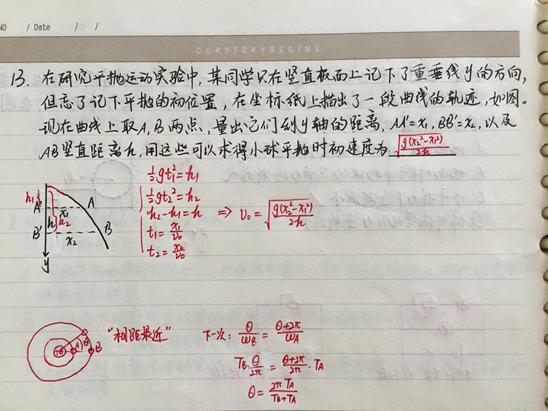 NO / Date / /
OURSTORYBEGINS
13. 在研究平抛运动实验中,某同学只在竖直板面上记下了重垂线y的方向,
但忘了记下平抛的初位置,在坐标纸上描出了一段曲线的轨迹,如图。
现在曲线上取A,B两点,量出它们到y轴的距离,AA'=x₁,BB'=x₂,以及
AB竖直距离h,用这些可以求得小球平抛时初速度为 √(g(x₂²-x₁²)/2h)
h₁ A' x₁ A
h h₂
B' x₂ B
y
½gt₁²=h₁
½gt₂²=h₂
h₂-h₁=h ⇒ v₀=√(g(x₂²-x₁²)/2h)
t₁=x₁/v₀
t₂=x₂/v₀
A θ B
"相距最近"
下一次: θ/ω_B = (θ+2π)/ω_A
T_B·θ/2π = (θ+2π)/2π · T_A
θ = 2πT_A/(T_B+T_A)